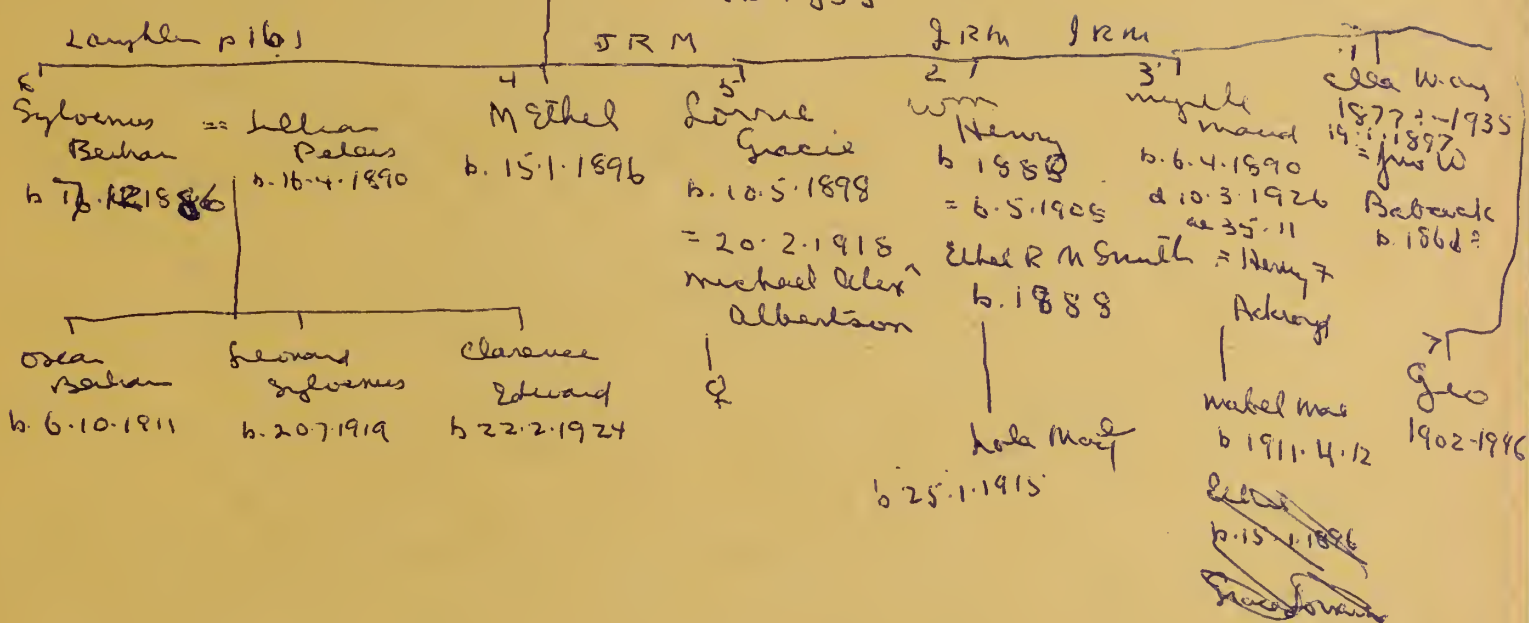 Laughlin p 161
J R M
J R M J R M
6
Sylvenus
Bertran
b
1886
== Lillian
Peters
b. 16.4.1890
4
M Ethel
b. 15.1.1896
5
Lorrie
Gracie
b. 10.5.1898
= 20.2.1918
Michael Alexr
Albertson
♀
2
Wm
Henry
b
= 6.5.1905
Ethel R M Smith
b. 1888
3
Myrtle
Maud
b. 6.4.1890
d 10.3.1926
ae 35.11
= Henry F
1
Ella
1877?-1935
19.1.1897
= Jno W
Babcock
7
Geo
1902-1946
Oscar
Bertran
b. 6.10.1911
Leonard
Sylvenus
b. 20.7.1919
Clarence
Edward
b 22.2.1924
Lola
b. 25.1.1915
Mabel Mae
b 1911.4.12
Ethel
b. 15.1.1896
Grace Lorraine